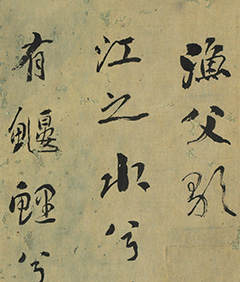 漁父歌
江之水兮
有鰋鯉兮